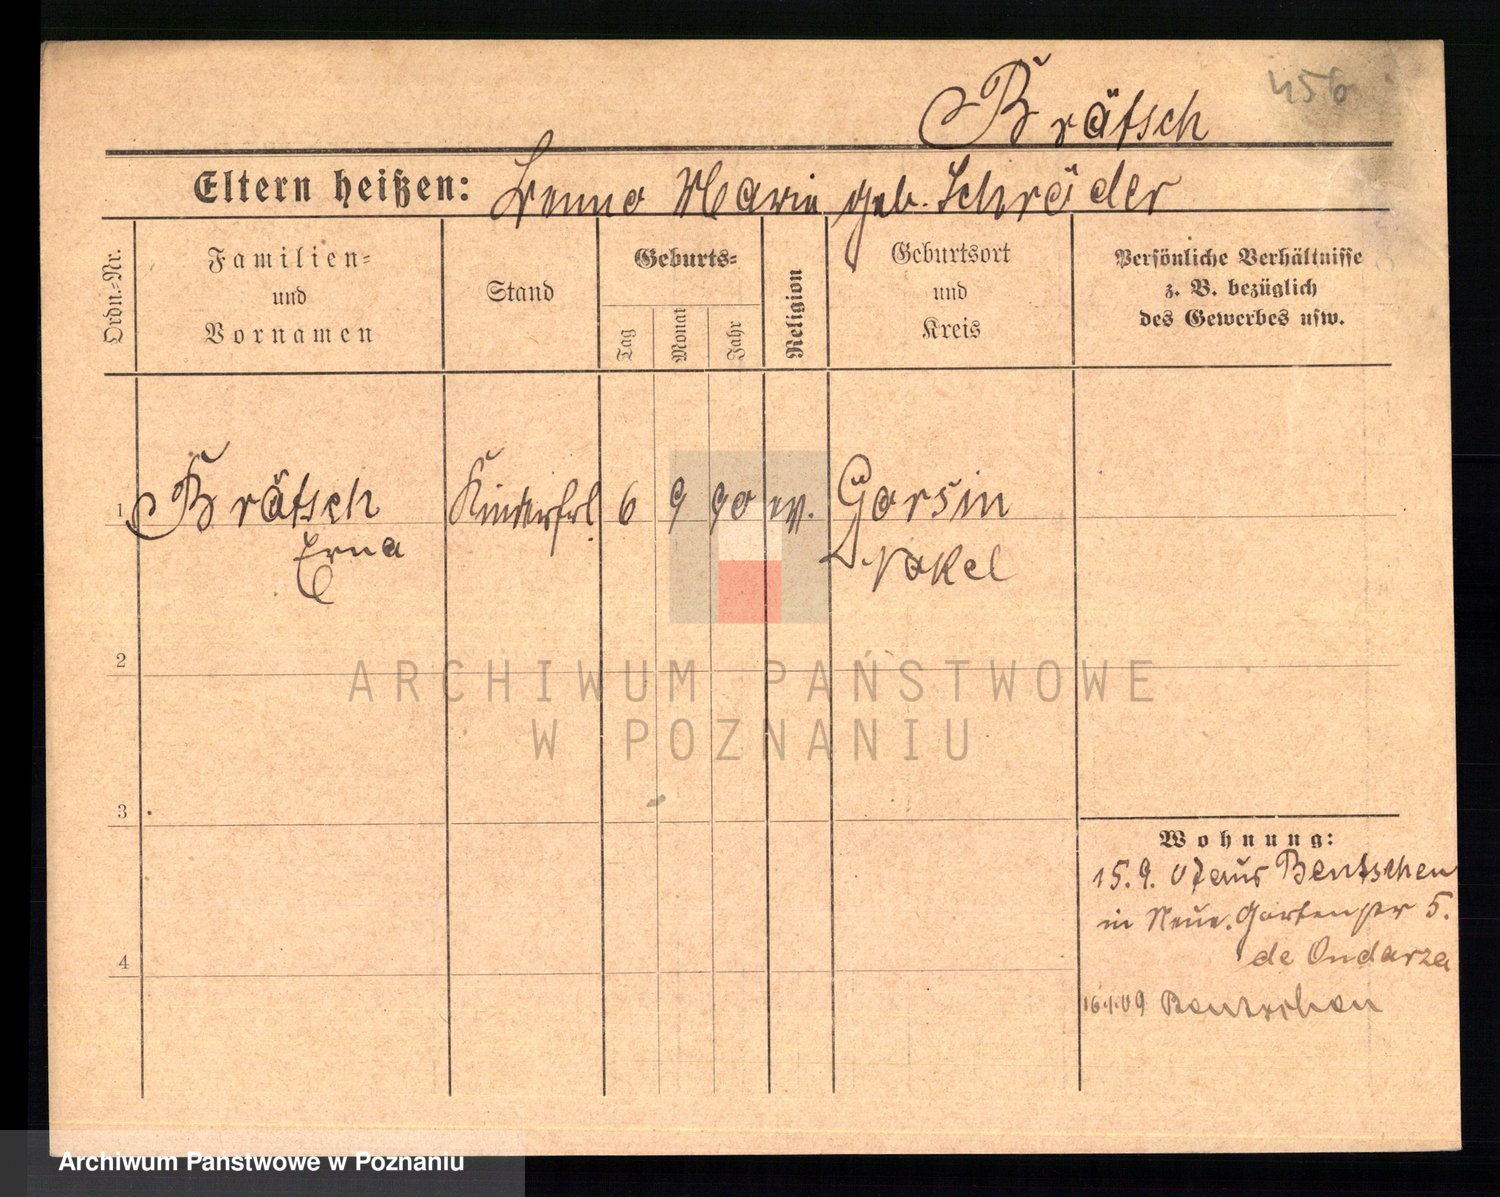 456
Brätsch
Eltern heißen: Benno Marie geb. Schröder
Ordn.-Nr.
Familien-
und
Vornamen
Stand
Geburts-
Tag
Monat
Jahr
Religion
Geburtsort
und
Kreis
Persönliche Verhältnisse
z. B. bezüglich
des Gewerbes usw.
1 Brätsch Kinderfrl. 6 9 90 ev. Gorsin
Erna Nakel
2
ARCHIWUM PAŃSTWOWE
W POZNANIU
3
Wohnung:
15.9. 07 aus Bentschen
in Neue. Gartenstr 5.
4
de Ondarza
09 Bentschen
Archiwum Państwowe w Poznaniu